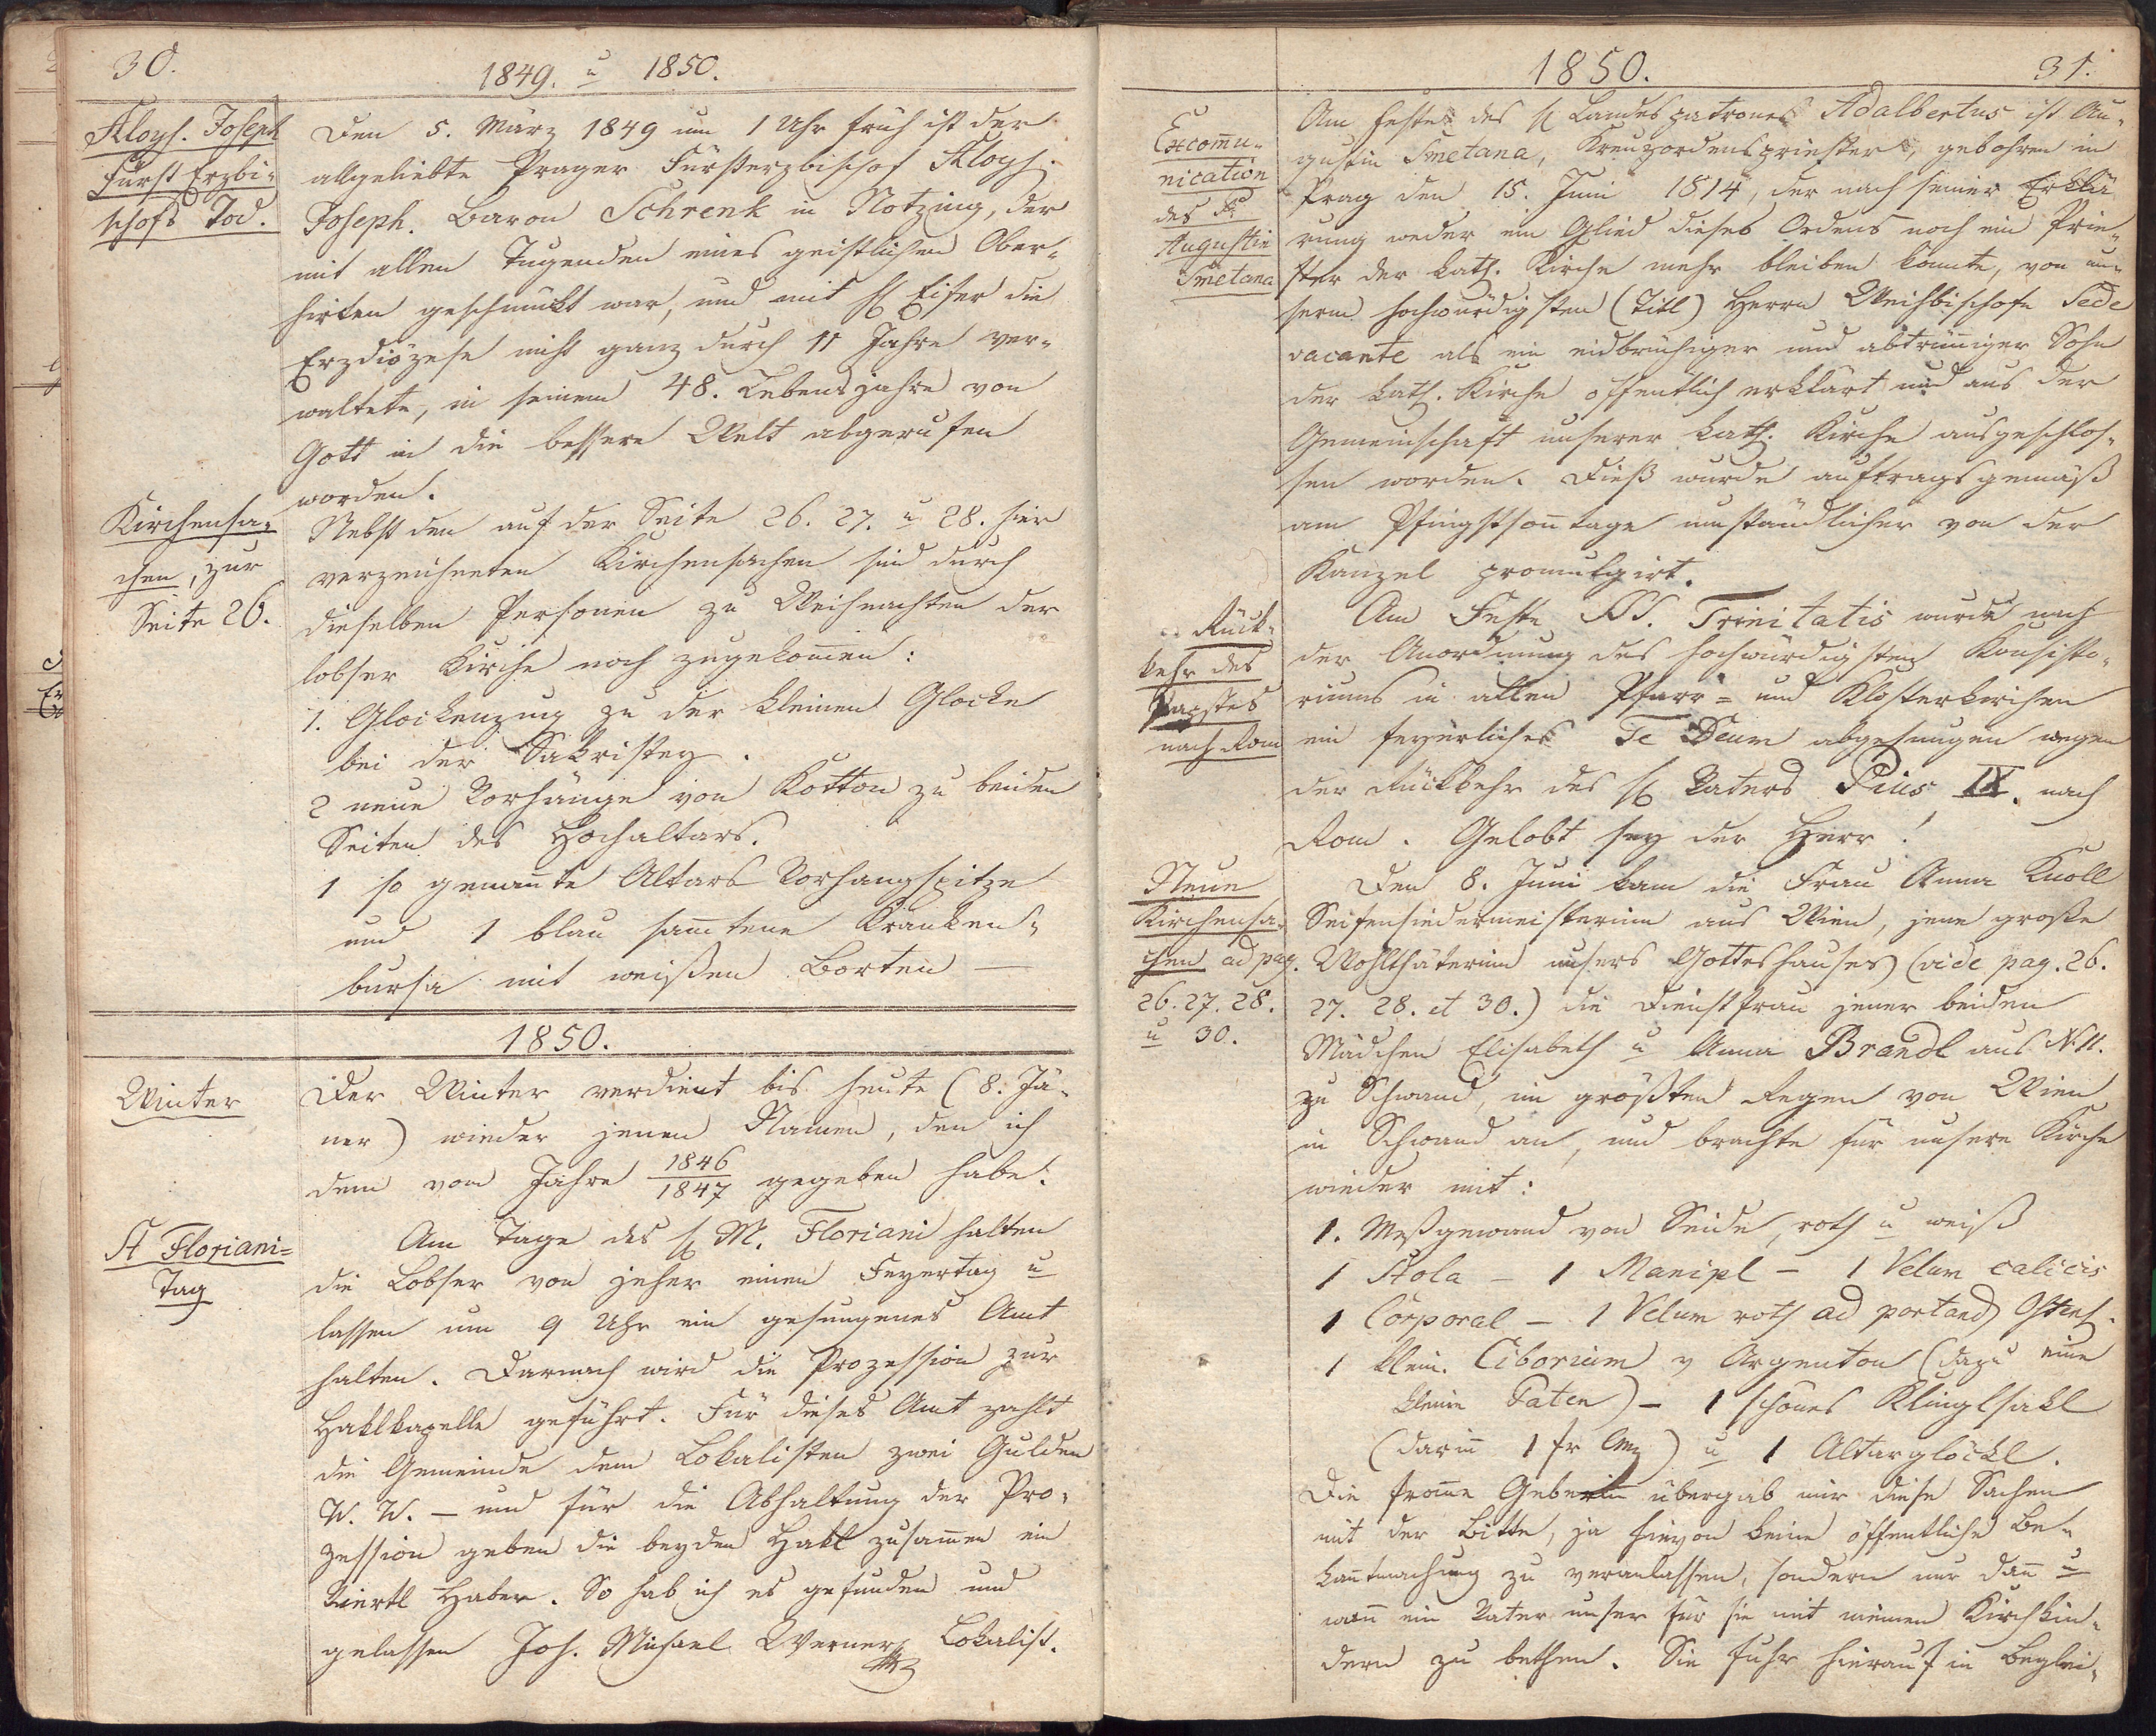 30.
1849. u 1850.
Aloys. Joseph
Fürst Erzbi-
schofs Tod.
Den 5. März 1849 um 1 Uhr früh ist der
allgeliebte Prager Fürsterzbischof Aloys
Joseph. Baron Schrenk in Notzing, der
mit allen Tugenden eines geistlichen Ober-
hirten geschmükt war, und mit hl Eifer die
Erzdiözese nicht ganz durch 11 Jahre ver-
waltete, in seinem 48. Lebensjahre von
Gott in die bessere Welt abgerufen
worden.
Kirchensa-
chen, zur
Seite 26.
Nebst den auf der Seite 26. 27. u 28. hier
verzeichneten Kirchensachen sind durch
dieselben Personen zu Weihnachten der
lobser Kirche noch zugekom̅en:
1. Glockenzug zu der kleinen Glocke
bei der Sakristey.
2 neue Vorhänge von Kotton zu beiden
Seiten des Hochaltars.
1 so genan̅te Altars Vorhangspitze
und 1 blau sam̅tene Kranken-
bursa mit weißen Borten —
1850.
Winter
Der Winter verdient bis heute (8. Jä-
ner) wieder jenen Namen, den ich
dem vom Jahre 1846/1847 gegeben habe.
St Floriani-
Tag
Am Tage des hl M. Floriani halten
die Lobser von jeher einen Feyertag u
lassen um 9 Uhr ein gesungenes Amt
halten. Darnach wird die Prozession zur
Haklkapelle geführt. Für dieses Amt zahlt
die Gemeinde dem Lokalisten zwei Gulden
W. W. — und für die Abhaltung der Pro-
zession geben die beyden Hakl zusam̅en ein
Viertl Haber. So hab ich es gefunden und
gelassen Joh. Michael Werner Lokalist.
1850.
31.
Excom̅u-
nication
des
Augustin
Smetana
Am Feste des hl Landespatrones Adalbertus ist Au-
gustin Smetana, Kreuzordenspriester, gebohren in
Prag den 15. Juni 1814, der nach seiner Erklä
rung weder ein Glied dieses Ordens noch ein Prie-
ster der kath. Kirche mehr bleiben konnte, von un-
serm hochwürdigsten (Titl) Herrn Weihbischofe Sede
vacante als ein eidbrüchiger und abtrün̅iger Sohn
der kath. Kirche öffentlich erklärt und aus der
Gemeinschaft unserer kath. Kirche ausgeschlos-
sen worden. Dieß wurde auftragsgemäß
am Pfingstson̅tage umständlicher von der
Kanzel promulgirt.
Rück-
kehr des
Papstes
nach Rom
Am Feste SS. Trinitatis wurde nach
der Anordnung des hochwürdigsten Konsisto-
riums in allen Pfarr- und Klosterkirchen
ein feyerliches Te Deum abgesungen wegen
der Rückkehr des hl Vaters Pius IX. nach
Rom. Gelobt sey der Herr!
Neue
Kirchensa-
chen ad pag.
26. 27. 28.
u 30.
Den 8. Juni kam die Frau Anna Knoll
Seifensiedermeisterinn aus Wien, jene große
Wohlthäterinn unsers Gotteshauses (vide pag. 26.
27. 28. et 30.) die Dienstfrau jener beiden
Mädchen Elisabeth u Anna Brandl aus N. 11.
zu Schwand, im größten Regen von Wien
in Schwand an, und brachte für unsere Kirche
wieder mit:
1. Meßgewand von Seide, roth u weiß
1 Stola — 1 Manipl — 1 Velum calicis
1 Corporal — 1 Velum roth ad portand Ostens.
1 klein. Ciborium v Argenton (dazu eine
kleine Paten) — 1 schönes Klinglsakl
(darin̅ 1 fr CMz) u 1 Altarglöckl.
Die from̅e Geberin übergab mir diese Sachen
mit der Bitte, ja hievon keine öffentliche Be-
kan̅tmachung zu veranlassen, sondern nur dan̅ u
wan̅ ein Vater unser für sie mit meinen Kirchkin-
dern zu bethen. Sie fuhr hierauf in Beglei-